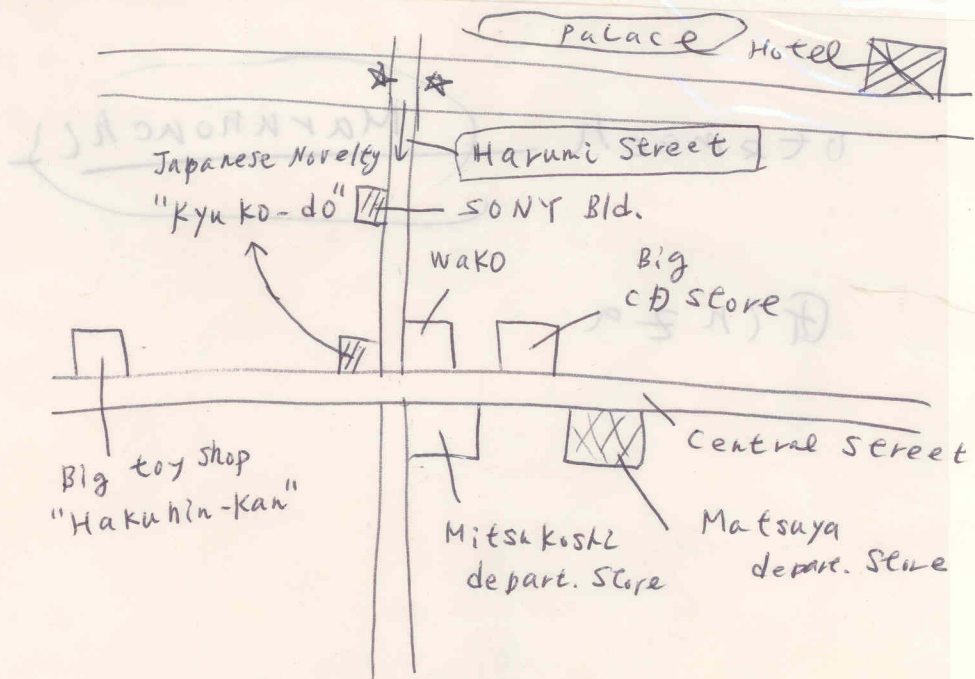 Palace
Hotel
Harumi Street
Japanese Novelty
"Kyu Ko-do"
SONY Bld.
wako
Big
CD Store
Central Street
Big toy shop
"Hakuhin-Kan"
Mitsukoshi
depart. Store
Matsuya
depart. Store